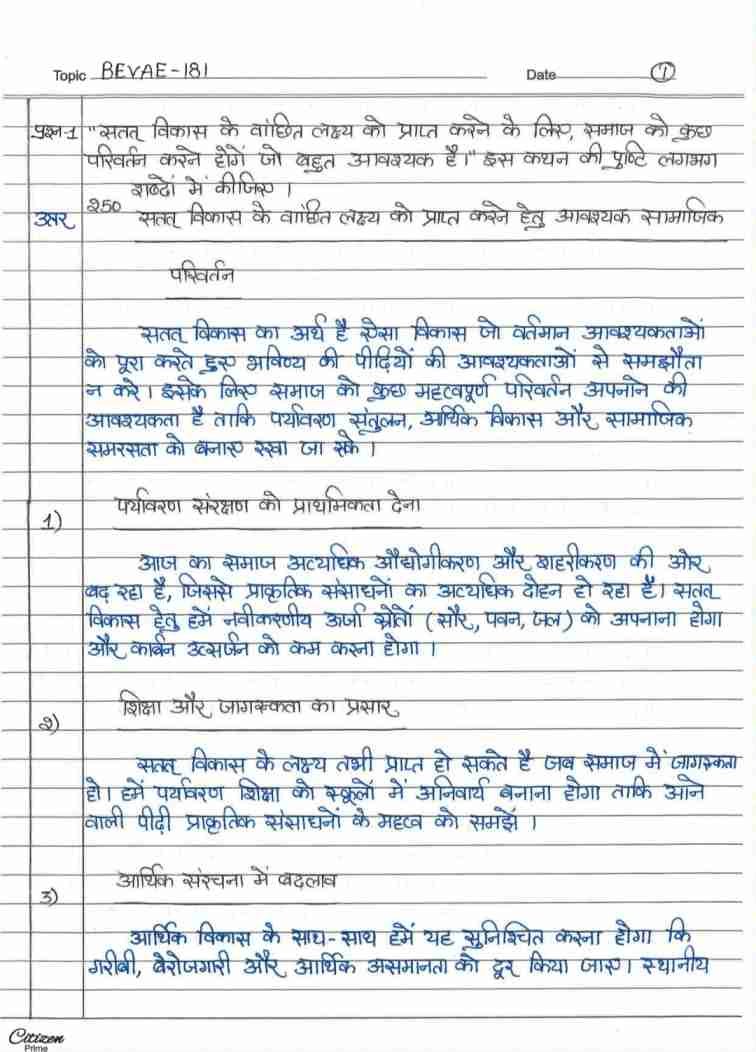 Topic BEVAE-181 Date 1
प्रश्न-1 "सतत् विकास के वांछित लक्ष्य को प्राप्त करने के लिए, समाज को कुछ
परिवर्तन करने होगें जो बहुत आवश्यक है।" इस कथन की पुष्टि लगभग
250 शब्दों में कीजिए।
उत्तर सतत् विकास के वांछित लक्ष्य को प्राप्त करने हेतु आवश्यक सामाजिक
परिवर्तन
सतत् विकास का अर्थ है ऐसा विकास जो वर्तमान आवश्यकताओं
को पूरा करते हुए भविष्य की पीढ़ियों की आवश्यकताओं से समझौता
न करे। इसके लिए समाज को कुछ महत्वपूर्ण परिवर्तन अपनाने की
आवश्यकता है ताकि पर्यावरण संतुलन, आर्थिक विकास और सामाजिक
समरसता को बनाए रखा जा सके।
1) पर्यावरण संरक्षण को प्राथमिकता देना
आज का समाज अत्यधिक औद्योगीकरण और शहरीकरण की ओर
बढ़ रहा है, जिससे प्राकृतिक संसाधनों का अत्यधिक दोहन हो रहा है। सतत्
विकास हेतु हमें नवीकरणीय ऊर्जा स्रोतों (सौर, पवन, जल) को अपनाना होगा
और कार्बन उत्सर्जन को कम करना होगा।
2) शिक्षा और जागरूकता का प्रसार
सतत् विकास के लक्ष्य तभी प्राप्त हो सकते है जब समाज में जागरूकता
हो। हमें पर्यावरण शिक्षा को स्कूलों में अनिवार्य बनाना होगा ताकि आने
वाली पीढ़ी प्राकृतिक संसाधनों के महत्व को समझें।
3) आर्थिक संरचना में बदलाव
आर्थिक विकास के साथ-साथ हमें यह सुनिश्चित करना होगा कि
गरीबी, बेरोजगारी और आर्थिक असमानता को दूर किया जाए। स्थानीय
Citizen
Prime